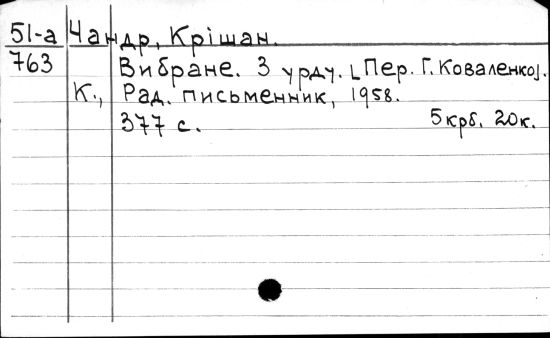 51-а Чандр, Крішан.
763 Вибране. З урду. [Пер. Г. Коваленко].
К., Рад. письменник, 1958.
377 с. 5 крб. 20 к.